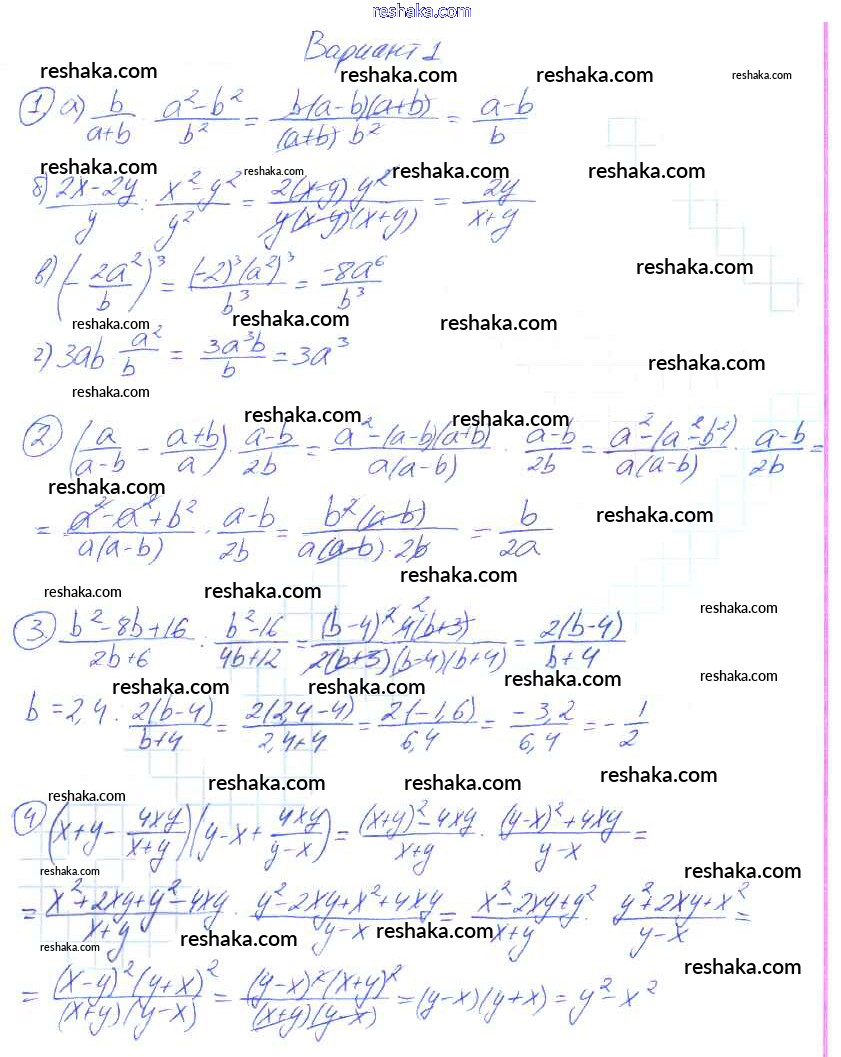 reshaka.com
Вариант 1
reshaka.com reshaka.com reshaka.com reshaka.com
① а) b/(a+b) · (a²-b²)/b² = b(a-b)(a+b)/((a+b) b²) = (a-b)/b
reshaka.com reshaka.com reshaka.com reshaka.com
б) (2x-2y)/y : (x²-y²)/y² = 2(x-y) y²/(y(x-y)(x+y)) = 2y/(x+y)
reshaka.com
в) (-2a²/b)³ = (-2)³(a²)³/b³ = -8a⁶/b³
reshaka.com reshaka.com reshaka.com
г) 3ab · a²/b = 3a³b/b = 3a³
reshaka.com
reshaka.com
reshaka.com reshaka.com
② (a/(a-b) - (a+b)/a) · (a-b)/2b = (a²-(a-b)(a+b))/(a(a-b)) · (a-b)/2b = (a²-(a²-b²))/(a(a-b)) · (a-b)/2b =
reshaka.com
= (a²-a²+b²)/(a(a-b)) · (a-b)/2b = b²(a-b)/(a(a-b)·2b) = b/2a
reshaka.com
reshaka.com
reshaka.com reshaka.com reshaka.com
③ (b²-8b+16)/(2b+6) : (b²-16)/(4b+12) = (b-4)² 4(b+3)/(2(b+3)(b-4)(b+4)) = 2(b-4)/(b+4)
reshaka.com reshaka.com reshaka.com reshaka.com
b = 2,4 : 2(b-4)/(b+4) = 2(2,4-4)/(2,4+4) = 2(-1,6)/6,4 = -3,2/6,4 = -1/2
reshaka.com reshaka.com reshaka.com reshaka.com
④ (x+y - 4xy/(x+y))(y-x + 4xy/(y-x)) = ((x+y)²-4xy)/(x+y) · ((y-x)²+4xy)/(y-x) =
reshaka.com reshaka.com
= (x²+2xy+y²-4xy)/(x+y) · (y²-2xy+x²+4xy)/(y-x) = (x²-2xy+y²)/(x+y) · (y²+2xy+x²)/(y-x) =
reshaka.com reshaka.com reshaka.com
reshaka.com
= (x-y)²(y+x)²/((x+y)(y-x)) = (y-x)²(x+y)²/((x+y)(y-x)) = (y-x)(y+x) = y²-x²